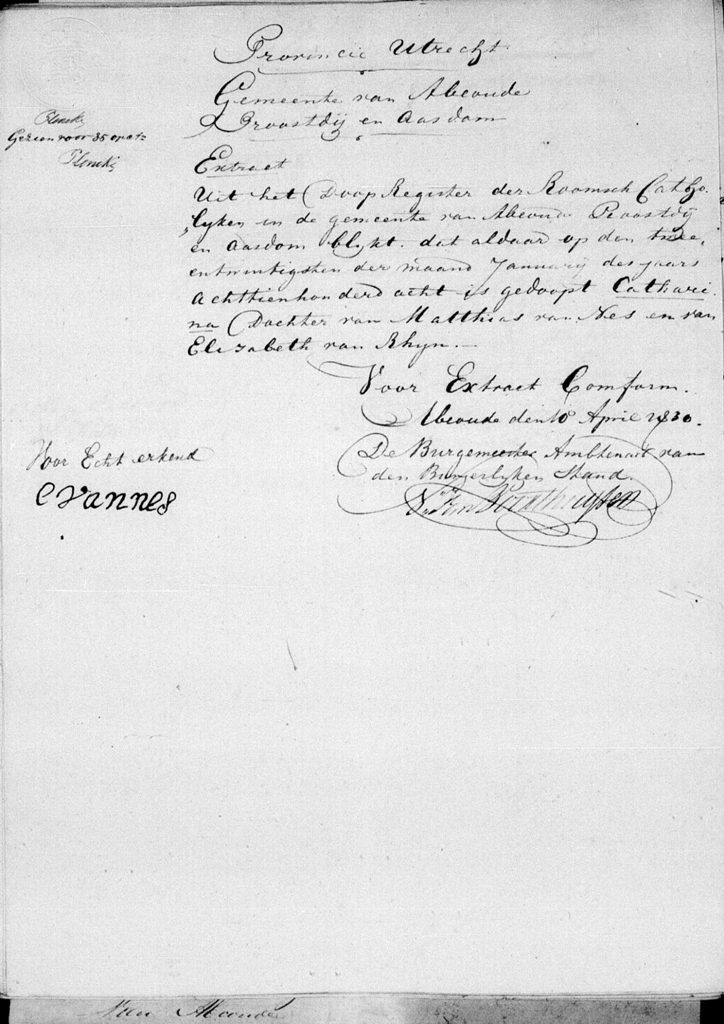 Provincie Utrecht
Gemeente van Abcoude
Proostdij en Aasdom
Gezien voor 35 cpnts
Extract
Uit het Doop Register der Roomsch Catho„
„lyken in de gemeente van Abcoude Proostdij
en Aasdom blykt dat aldaar op den twee„
entwintigsten der maand Januarij des jaars
achttienhonderd acht is gedoopt Cathari„
na Dochter van Matthias van Nes en van
Elizabeth van Rhyn.—
Voor Extract Comform.
Abcoude den 10 April 1830.
De Burgemeester Ambtenaar van
den Burgerlyken Stand.
Voor Echt erkend
C van nes
Van Abcoude